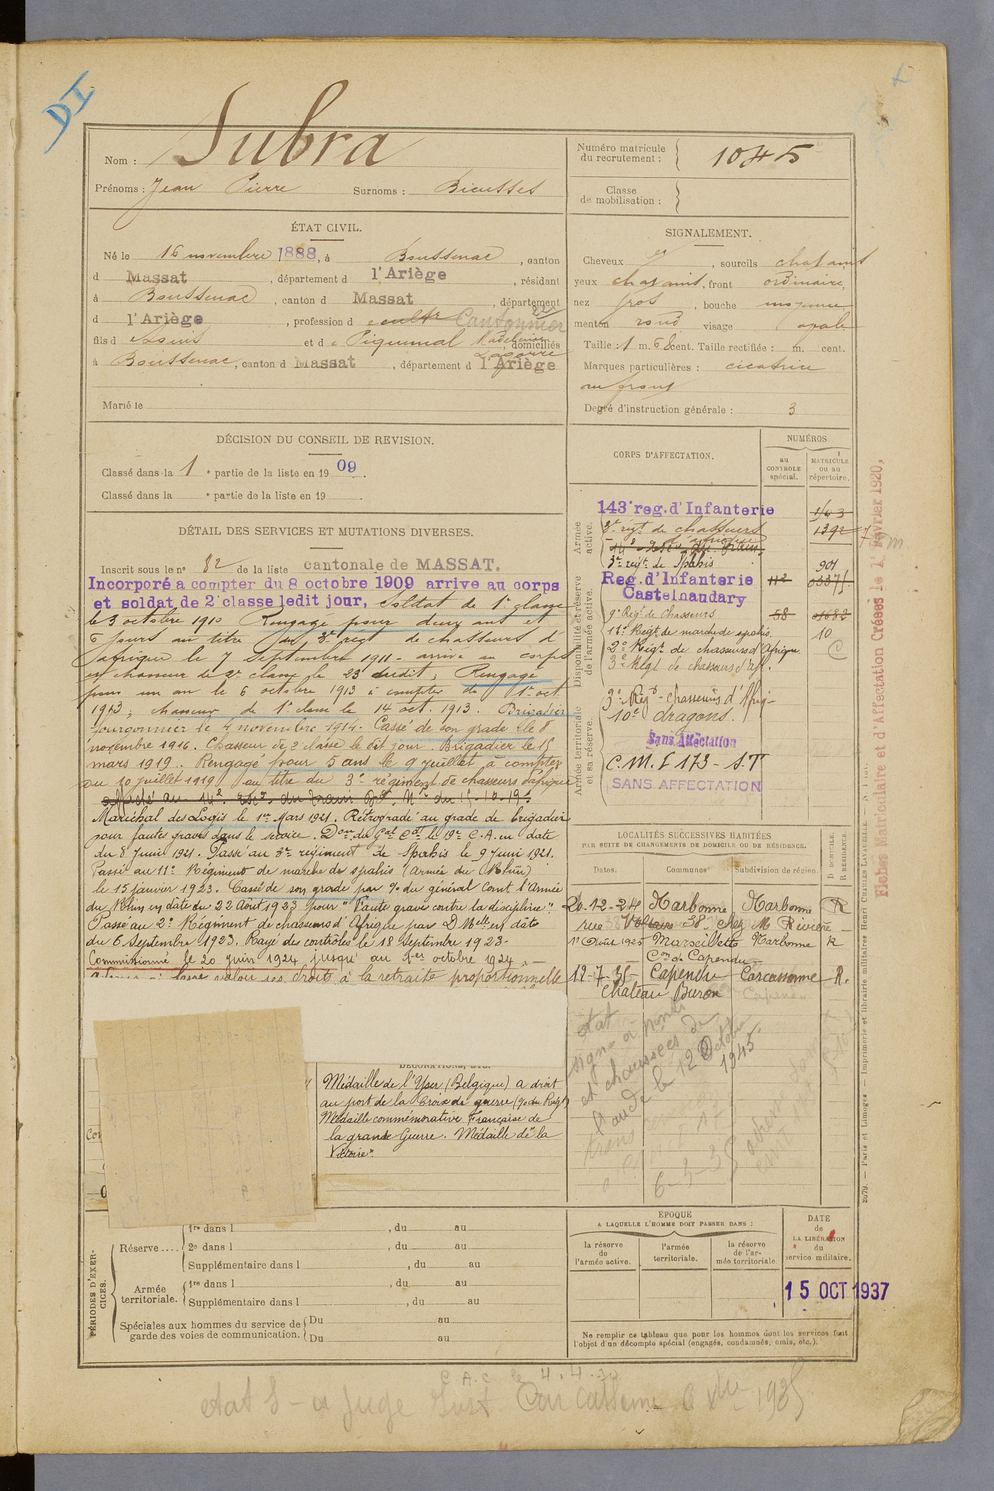 DI
Nom : Subra
Prénoms : Jean Pierre Surnoms : Bicusses
Numéro matricule
du recrutement : 1045
Classe
de mobilisation :
ÉTAT CIVIL.
Né le 16 novembre 1888, à Boussenac, canton
d Massat, département d l'Ariège, résidant
à Boussenac, canton d Massat, département
d l'Ariège, profession d cultr Cantonnier
fils d Louis et d e Piquemal Madeleine, domiciliés
à Boussenac, canton d Massat, département d l'Ariège
Marié le
SIGNALEMENT.
Cheveux , sourcils chatains
yeux chatains, front ordinaire,
nez gros, bouche moyenne
menton rond visage ovale
Taille : 1 m. 68 cent. Taille rectifiée : m. cent.
Marques particulières : cicatrice
au front
Degré d'instruction générale : 3
DÉCISION DU CONSEIL DE REVISION.
Classé dans la 1 e partie de la liste en 1909.
Classé dans la e partie de la liste en 19 .
DÉTAIL DES SERVICES ET MUTATIONS DIVERSES.
Inscrit sous le n° 82 de la liste cantonale de MASSAT.
Incorporé a compter du 8 octobre 1909 arrive au corps
et soldat de 2e classe ledit jour, Soldat de 1e classe
le 3 octobre 1910 Rengagé pour deux ans et
6 jours au titre du 3e regt de chasseurs d'
afrique le 7 Septembre 1911 - arrivé au corps
et chasseur de 2e classe le 23 dudit, Rengagé
pour un an le 6 octobre 1913 à compter du 1er oct
1913, chasseur de 1e classe le 14 oct. 1913. Brigadier
fourgonnier le 4 novembre 1914. Cassé de son grade le 8
novembre 1916. Chasseur de 2e classe le dit jour. Brigadier le 15
mars 1919. Rengagé pour 5 ans le 9 juillet à compter
du 10 juillet 1919 au titre du 3e régiment de chasseurs d'afrique
Maréchal des Logis le 1er Mars 1921. Rétrogradé au grade de brigadier
pour fautes graves dans le service. Don du Gal Ct le 19e C.A. en date
du 8 Juin 1921. Passé au 3e regiment de Spahis le 9 Juin 1921.
Passé au 11e Régiment de marche de spahis (Armée du Rhin)
le 15 janvier 1923. Cassé de son grade par % du général comt l'Armée
du Rhin en date du 22 Août 1923 pour "Faute grave contre la discipline".
Passé au 2e Régiment de chasseurs d'Afrique par D Melle en date
du 6 Septembre 1923. Rayé des contrôles le 18 Septembre 1923-
Commissionné le 20 juin 1924 jusqu'au 1er octobre 1924
à faire valoir ses droits à la retraite proportionnelle
CORPS D'AFFECTATION.
NUMÉROS
au
CONTROLE
spécial.
MATRICULE
ou au
répertoire.
Armée
active.
143e reg. d'Infanterie 1/43
3e regt de chasseurs d'afrique 1392
14e Esc. du train
3e regt de Spahis 901
Disponibilité et réserve
de l'armée active.
Reg. d'Infanterie
Castelnaudary
9e Régt de Chasseurs 58
11e Regt de marche de spahis. 10
2e Regt de chasseurs d'Afrique C
3e Regt de chasseurs d'Af.
Armée territoriale
et sa réserve.
3e Regt chasseurs d'Afriq-
10e dragons.
Sans Affectation
C.M.I 173 - S.T
SANS AFFECTATION
LOCALITÉS SUCCESSIVES HABITÉES
PAR SUITE DE CHANGEMENTS DE DOMICILE OU DE RÉSIDENCE.
Dates. Communes Subdivision de région. D. DOMICILE. R. RÉSIDENCE.
20-12-24 Narbonne Narbonne R
rue Voltaire 38. chez M Rivière
1er Août 1925 Marseillette Narbonne R
Con de Capendu
12-7-35 Capendu Carcassonne R.
Château Buron
etat
signé à ponts
et chaussées de
l'aude le 12 Octobre
1945
6-3-35
DÉCORATIONS, ETC.
Médaille de l'Yser (Belgique) a droit
au port de la Croix de guerre (% du Régt)
Médaille commémorative Française de
la grande Guerre. Médaille de la
Victoire".
PÉRIODES D'EXERCICES.
Réserve ....
1re dans l , du au
2e dans l , du au
Supplémentaire dans l , du au
Armée
territoriale.
1re dans l , du au
Supplémentaire dans l , du au
Spéciales aux hommes du service de
garde des voies de communication.
Du au
Du au
ÉPOQUE
A LAQUELLE L'HOMME DOIT PASSER DANS :
la réserve
de
l'armée active.
l'armée
territoriale.
la réserve
de l'ar-
mée territoriale
DATE
de
LA LIBÉRATION
du
service militaire.
15 OCT 1937
Ne remplir ce tableau que pour les hommes dont les services font
l'objet d'un décompte spécial (engagés, condamnés, omis, etc.).
C.A.C. le 4.4.
etat S - a Juge Carcassonne 1935
Fiches Matriculaire et d'Affectation Créées le 1er Février 1920,
2079. — Paris et Limoges. — Imprimerie et librairie militaires Henri CHARLES LAVAUZELLE.